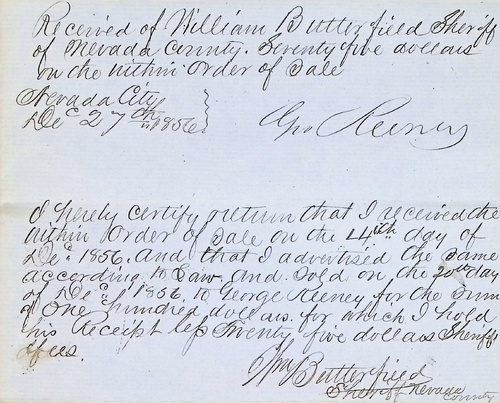 Received of William Butterfield Sheriff
of Nevada County. Seventy five dollars
on the within Order of Sale
Nevada City
Dec 27th 1856
Geo Keeney
I hereby certify return that I received the
within Order of Sale on the 4th day of
Dec. 1856. and that I advertised the same
according to Law. and Sold on the 20th day
of Dec 1856. to George Keeney for the Sum
of One hundred dollars. for which I hold
his Receipt less Twenty five dollars Sheriffs
fees.
Wm Butterfield
Sheriff Nevada
County